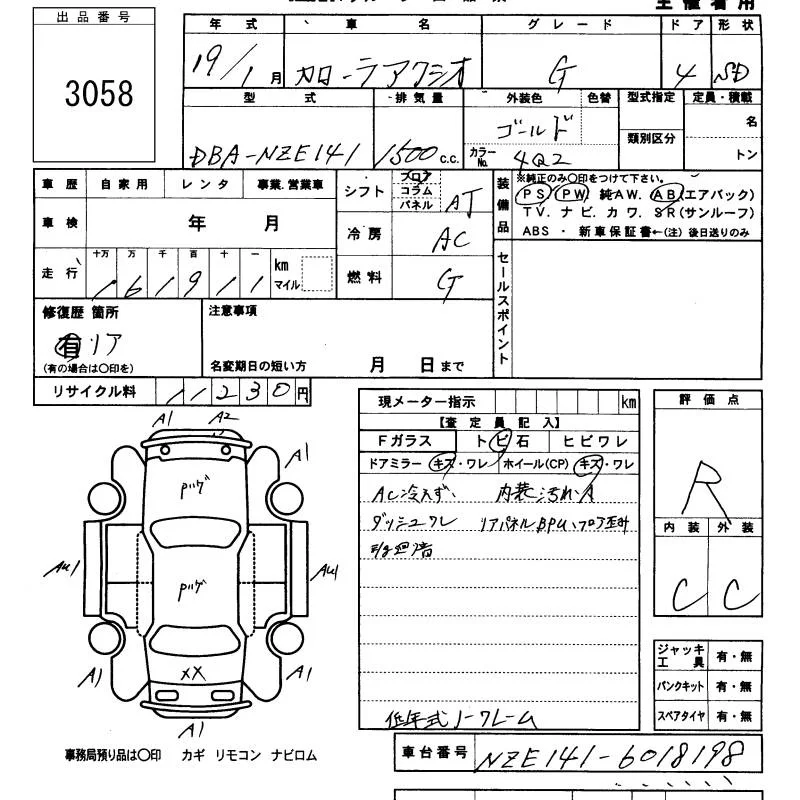 主催者用
出品番号
3058
年式 車名 グレード ドア 形状
19/1月 カローラアクシオ G 4 SD
型式 排気量 外装色 色替 型式指定 定員・積載
ゴールド 類別区分 名
DBA-NZE141 1500c.c. カラーNo. 4Q2 トン
車歴 自家用 レンタ 事業.営業車
シフト フロア コラム パネル AT
装備品
※純正のみ〇印をつけて下さい。
PS PW 純AW. AB(エアバック)
TV. ナビ. カワ. SR(サンルーフ)
ABS ・ 新車保証書←(注) 後日送りのみ
車検 年 月
冷房 AC
走行 十万 万 千 百 十 一
161911 km マイル
燃料 G
セールスポイント
修復歴 箇所
有 リア
(有の場合は〇印を)
注意事項
名変期日の短い方 月 日まで
リサイクル料 11230円
現メーター指示 km
【査定員記入】
Fガラス トビ石 ヒビワレ
ドアミラー キズ・ワレ ホイール(CP) キズ・ワレ
AC冷えず、 内装汚れ・A
ダッシュワレ
低年式ノークレーム
評価点
R
内装 外装
C C
A1 A2
A1
Pツゲ
AU1 AU1
Pツゲ
A1 XX A1
A1
ジャッキ工具 有・無
パンクキット 有・無
スペアタイヤ 有・無
事務局預り品は〇印 カギ リモコン ナビロム
車台番号 NZE141-6018198